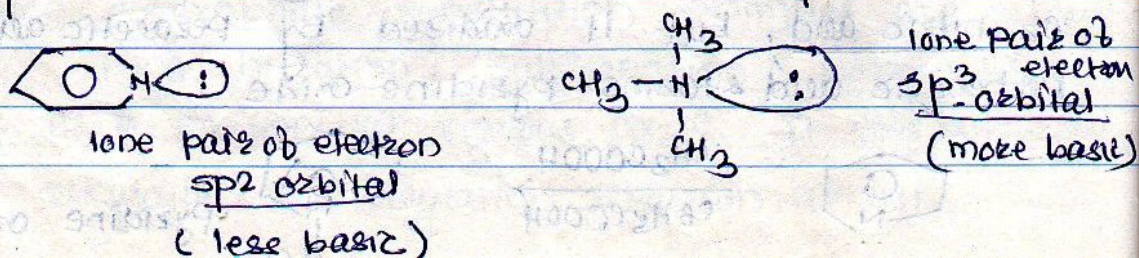 N
:
lone pair of electron
sp2 orbital
(less basic)
CH3
CH3 - N
:
CH3
lone pair of
electron
sp3 - orbital
(more basic)